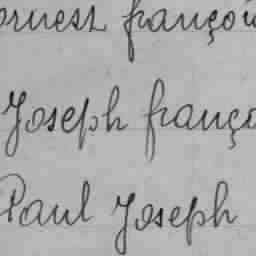 ornest françoi
Joseph franço
Paul Joseph